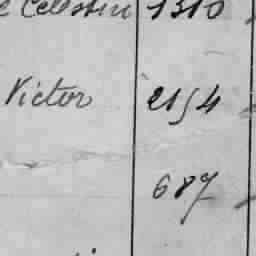 Celestin 1310
Victor 2154
687